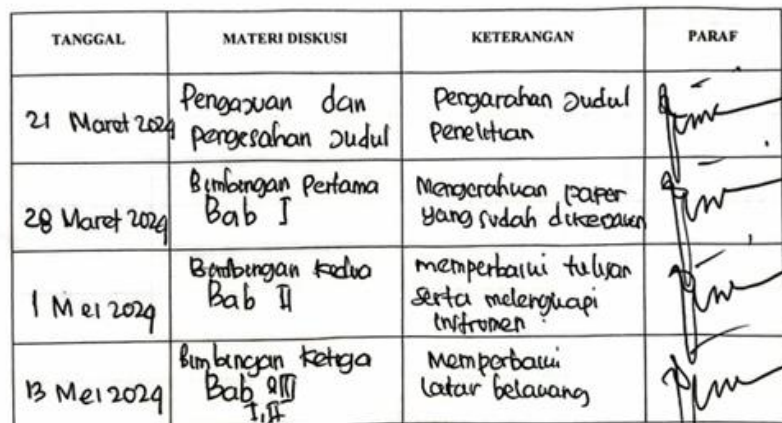 TANGGAL MATERI DISKUSI KETERANGAN PARAF
21 Maret 2024
Pengajuan dan
pengesahan Judul
Pengarahan Judul
Penelitian
28 Maret 2024
Bimbingan Pertama
Bab I
Mengerahkan paper
yang sudah dikerjakan
1 Mei 2024
Bimbingan kedua
Bab II
memperbaiki tulisan
serta melengkapi
instrumen
13 Mei 2024
Bimbingan ketiga
Bab III
I, II
Memperbaiki
latar belakang